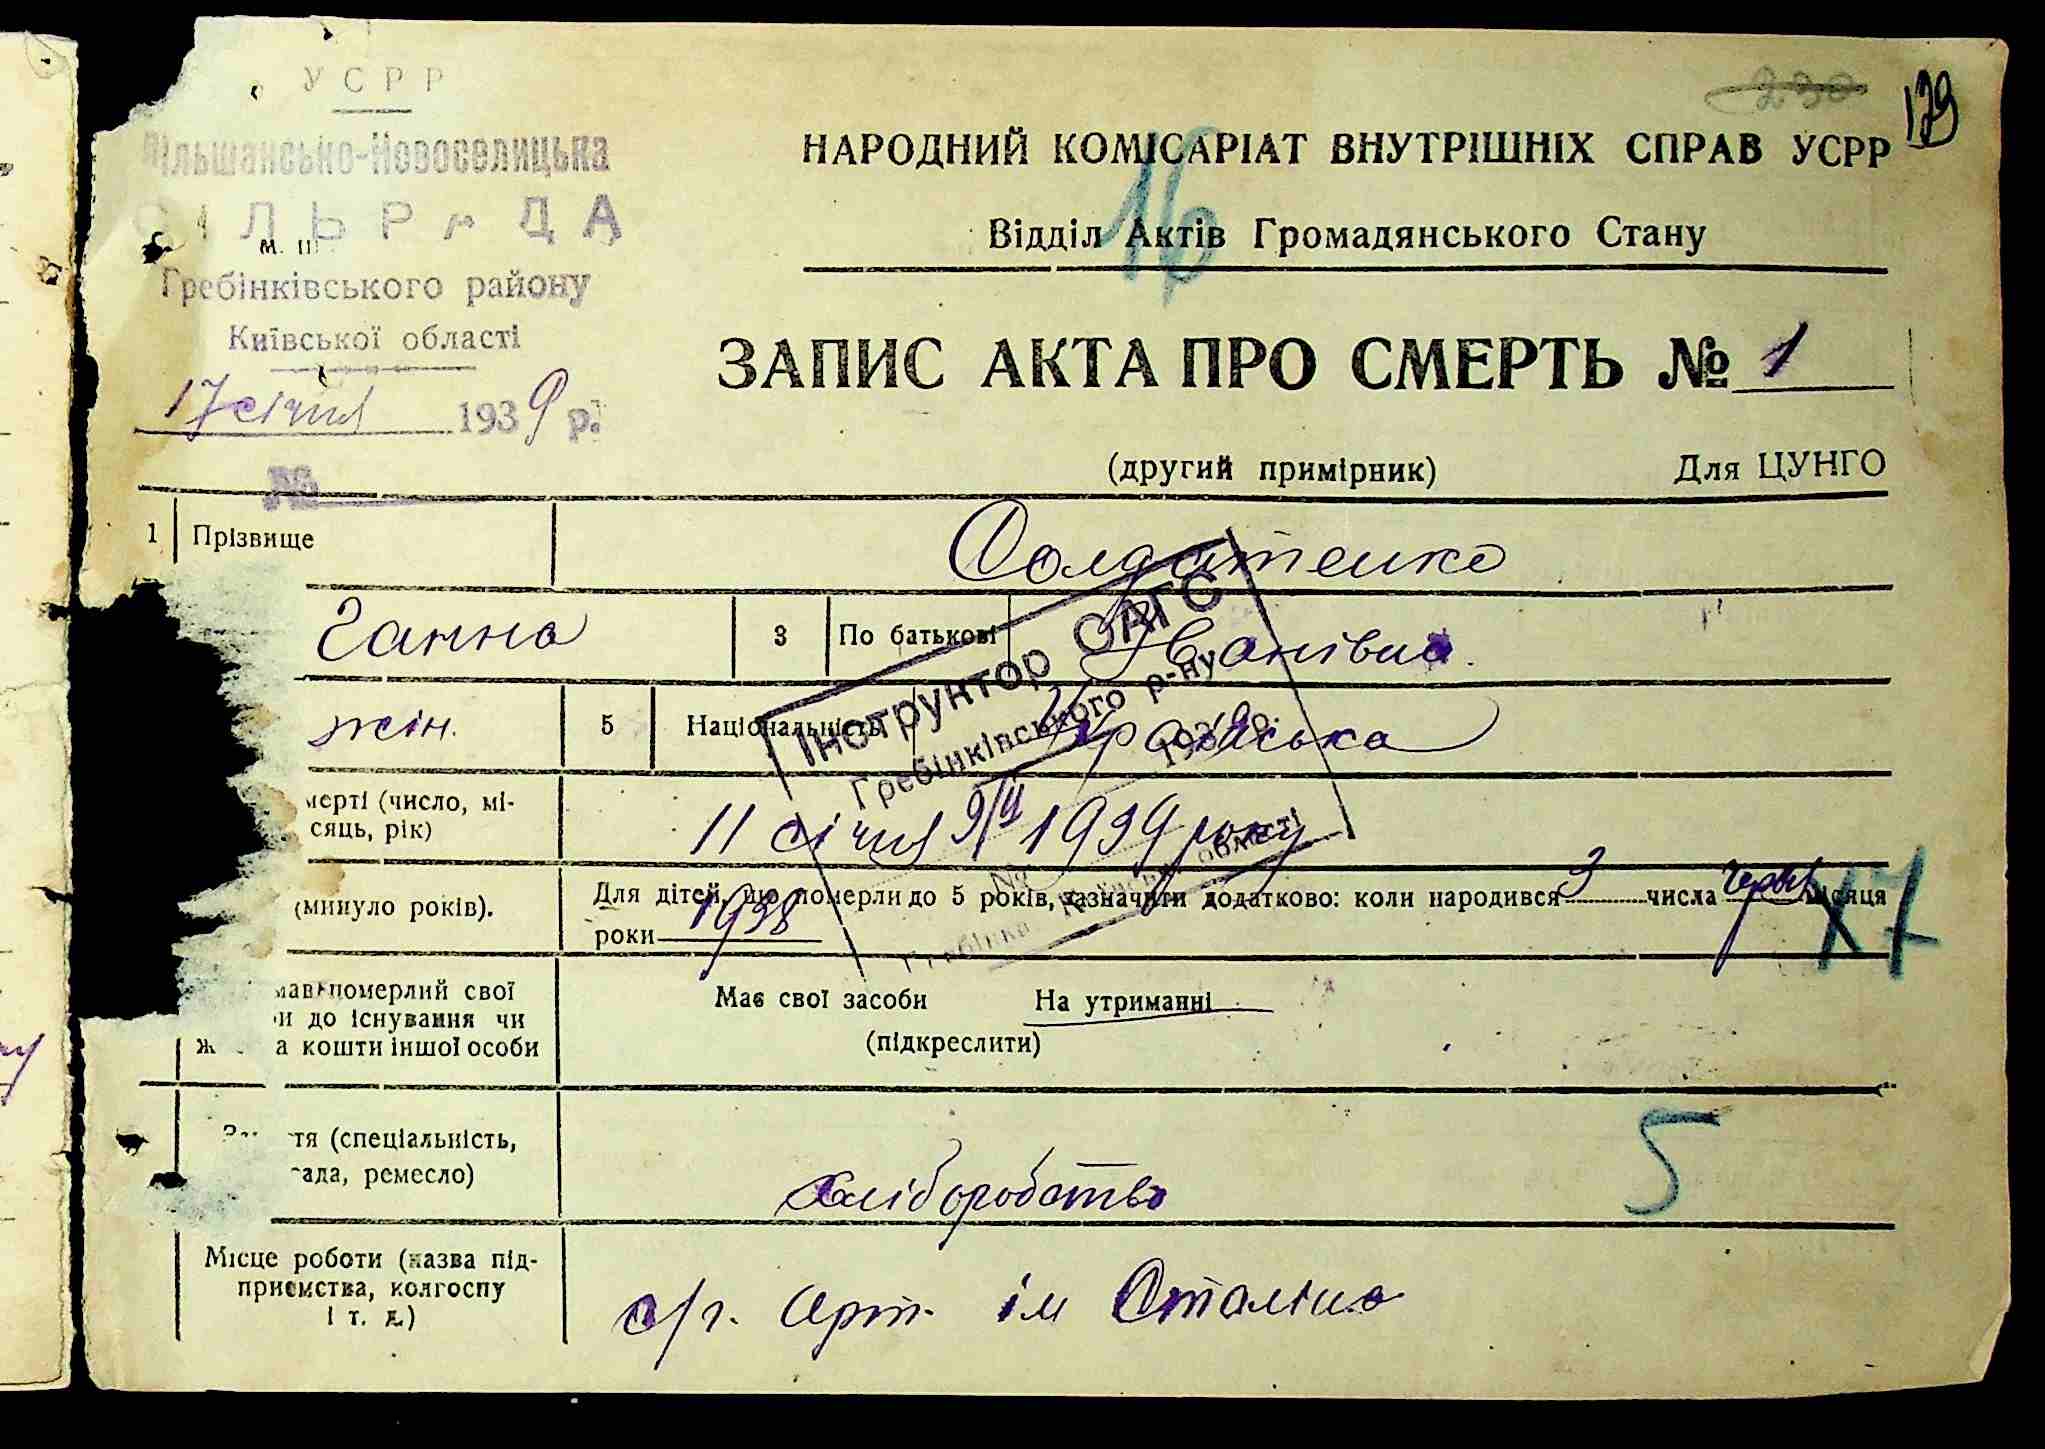 УСРР
Вільшансько-Новоселицька
СІЛЬРАДА
М. Ш
Гребінківського району
Київської області
17 січня 1939 р.
№
230
129
НАРОДНИЙ КОМІСАРІАТ ВНУТРІШНІХ СПРАВ УСРР
16
Відділ Актів Громадянського Стану
ЗАПИС АКТА ПРО СМЕРТЬ № 1
(другий примірник) Для ЦУНГО
1 Прізвище Солдатенко
Ганна 3 По батькові Іванівна
жін. 5 Національність Українська
мерті (число, мі-
сяць, рік) 11 січня 1939 року
(минуло років). Для дітей, що померли до 5 років, зазначити додатково: коли народився 3 числа червня місяця
роки 1938
Х7
мав померлий свої
и до існування чи
ж а кошти іншої особи
Має свої засоби На утриманні
(підкреслити)
тя (спеціальність,
ада, ремесло) хліборобство
5
Місце роботи (назва під-
приємства, колгоспу
і т. д.) с/г. Арт. ім Сталіна
Інструктор ОАГС
Гребінківського р-ну
193 р.
№
Гребінка Київської області